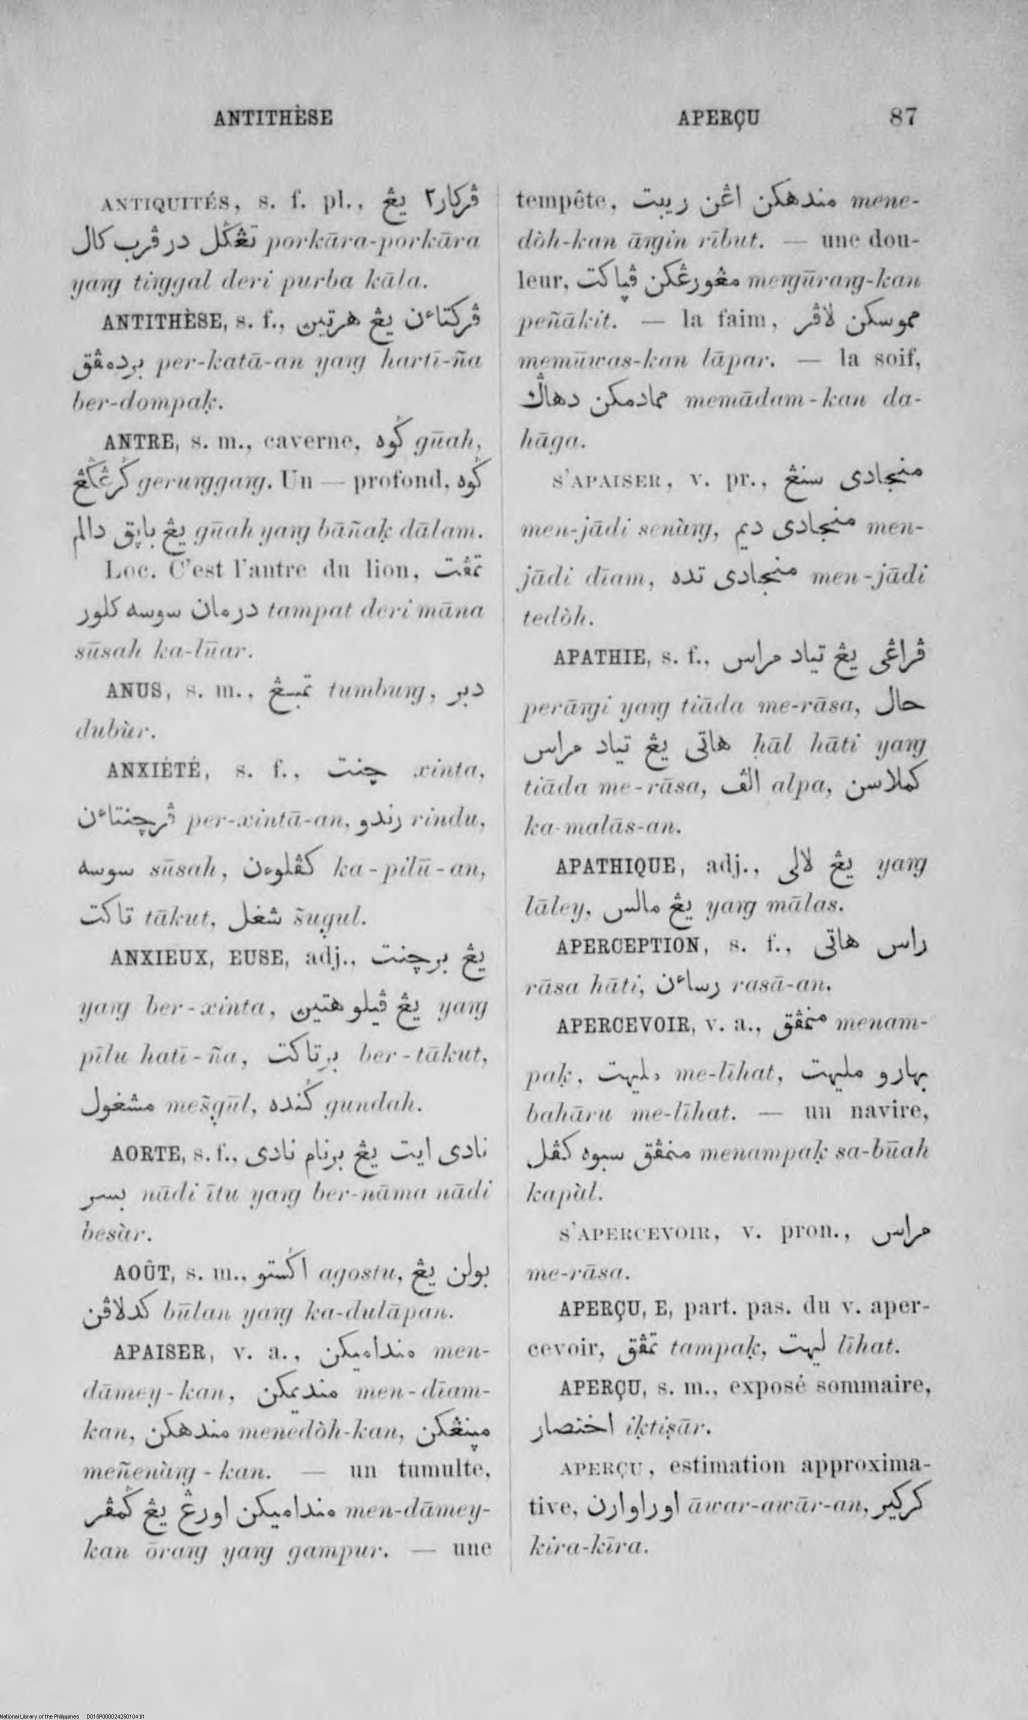 ANTITHÈSE
APERÇU 87
ANTIQUITÉS, s. f. pl., ڤرکار٢ يڠ
تڠݢل در ڤرب کال porkāra-porkāra
yaṅg tiṅggal deri purba kāla.
ANTITHÈSE, s. f., ڤرکتاءن يڠ هرتين
بردمڤق per-katā-an yaṅg hartī-ña
ber-dompaḳ.
ANTRE, s. m., caverne, ݢوه gūah,
ݢرڠݢڠ geruṅggaṅg. Un — profond, ݢوه
يڠ باڽق دالم gūah yaṅg bāñaḳ dālam.
Loc. C'est l'antre du lion, تمڤت
درمان سوسه کلور tampat deri māna
sūsah ka-lūar.
ANUS, s. m., تمبڠ tumbuṅg, دبر
dubùr.
ANXIÉTÉ, s. f., چنت xinta,
ڤرچنتاءن per-xintā-an, رندو rindu,
سوسه sūsah, کڤلوءن ka-pilū-an,
تاکت tākut, شغل s̃ug̣ul.
ANXIEUX, EUSE, adj., يڠ برچنت
yaṅg ber-xinta, يڠ ڤيلو هتين yaṅg
pīlu hatī-ña, برتاکت ber-tākut,
مشغول mes̃g̣ūl, ݢنده gundah.
AORTE, s. f., نادى ايت يڠ برنام نادى
بسر nādi ītu yaṅg ber-nāma nādi
besàr.
AOÛT, s. m., اݢستو agostu, بولن يڠ
کدلاڤن būlan yaṅg ka-dulāpan.
APAISER, v. a., منداميکن men-
dāmey-kan, منديمکن men-dīam-
kan, مندهکن menedòh-kan, مڽنڠکن
meñenàṅg-kan. — un tumulte,
منداميکن اورڠ يڠ ݢمڤر men-dāmey-
kan ōraṅg yaṅg gampur. — une
tempête, مندهکن اڠن ريبت mene-
dòh-kan āṅgin rībut. — une dou-
leur, مڠورڠکن ڤڽاکت meṅgūraṅg-kan
peñākit. — la faim, مموسکن لاڤر
memūwas-kan lāpar. — la soif,
ممادمکن دهاݢ memādam-kan da-
hāga.
S'APAISER, v. pr., منجادى سنڠ
men-jādi senàṅg, منجادى ديم men-
jādi dīam, منجادى تده men-jādi
tedòh.
APATHIE, s. f., ڤراڠى يڠ تياد مراس
perāṅgi yaṅg tiāda me-rāsa, حال
هاتى يڠ تياد مراس ḥāl hāti yaṅg
tiāda me-rāsa, الڤ alpa, کملاسن
ka-malās-an.
APATHIQUE, adj., يڠ لالى yaṅg
lāley, يڠ مالس yaṅg mālas.
APERCEPTION, s. f., راس هاتى
rāsa hāti, رساءن rasā-an.
APERCEVOIR, v. a., منمڤق menam-
paḳ, مليهت me-līhat, بهارو مليهت
bahāru me-līhat. — un navire,
منمڤق سبوه کڤل menampaḳ sa-būah
kapàl.
S'APERCEVOIR, v. pron., مراس
me-rāsa.
APERÇU, E, part. pas. du v. aper-
cevoir, تمڤق tampaḳ, ليهت līhat.
APERÇU, s. m., exposé sommaire,
اختصار iḳtiṣār.
APERÇU, estimation approxima-
tive, اوراوارن āwar-awār-an, کرکير
kira-kīra.
National Library of the Philippines